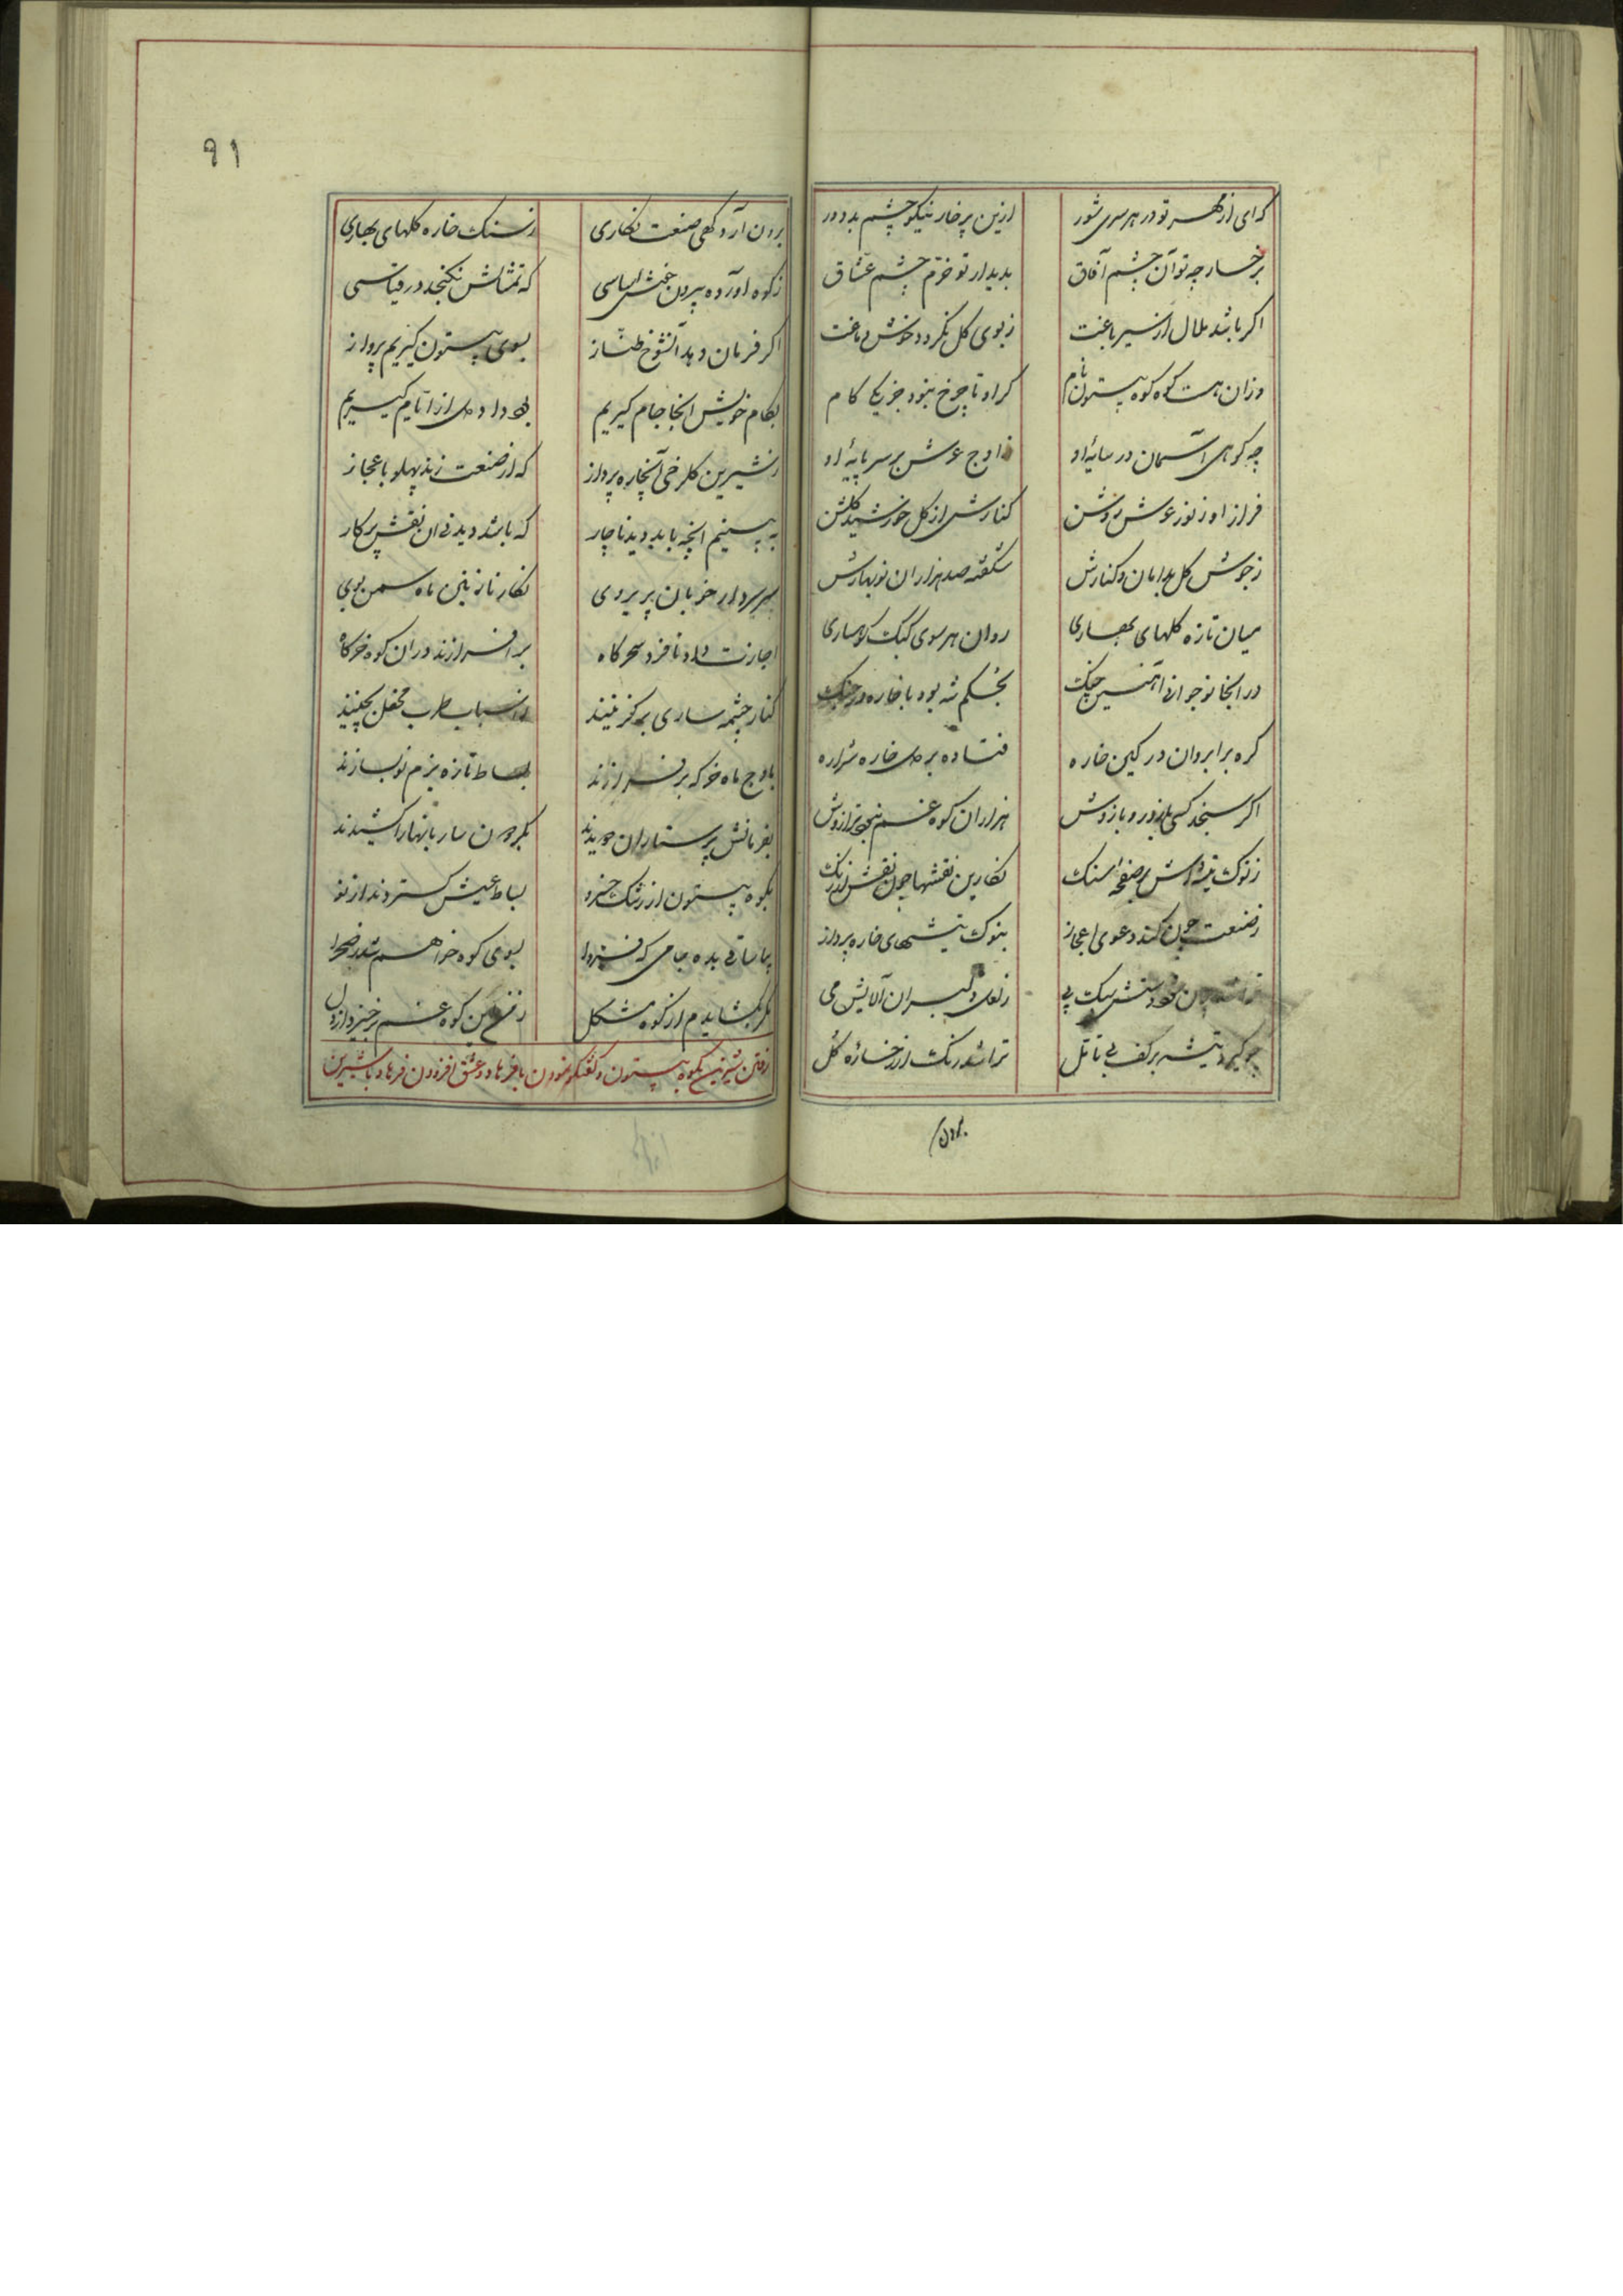 که ای از مهر تو در هر سری شور ازین پر خار نیکو چشم بد دور
برخسار چه تو آن چشم آفاق بدیدار تو خرّم چشم عشاق
اکر باشد ملال از سیر باغت ز بوی کل نکردد خوش دماغت
وزان هست کوه کوه بیستون نام کز او تا چرخ نبود جز یک کام
چه کوهی آسمان در سایهٔ او ز اوج عرش برسر پایهٔ او
فراز او ز نور عرش روشن کنارش از کل خورشید کلشن
ز جوش کل بدامان و کنارش شکفته صد هزاران نوبهارش
میان تازه کلهای بهاری روان هر سوی کبک کوهساری
در انجا نوجوانی آهنین چنک بخشکم شه بود با خاره در جنک
کره بر ابروان در کین خاره فتاده بر دل خاره شراره
اکر سنجد کسی با زور و بازوش هزاران کوه غم ترازوش
ز نوک تیشه اش بر صفحه سنک نکارین نقشها چون نقش ارژنک
ز صنعت چون کند دعوی اعجاز بنوک تیشهای خاره پرداز
ز لعل دلبران آلایش می
چو کیرد تیشه بر کف بی تامّل تراشد رنک از رخسارهٔ کل
برون
۹۱
برون آرد کهی صنعت نکاری ز سنک خاره کلهای بهاری
ز کوه آورده بیرون خوش اساسی که تمثالش نکنجد در قیاسی
اکر فرمان دهد آنشوخ طنّاز بسوی بیستون کیریم پرواز
بکام خویش انجا جام کیریم داد دل از ایام کیریم
ز شیرین کلرخی آنچاره پرداز که از صنعت زند پهلو باعجاز
به بینیم انچه باید دید ناچار که باشد دیدنی ان نقش پر کار
سر و سردار خوبان پریروی نکار نازنین ماه سمن بوی
اجازت داد تا فردا سحرکاه بر افرازند در ان کوه خرکاه
کنار چشمه ساری برکزینند ز اسباب طرب محفل بچینند
باوج ماه خرکه بر فرازند بساط تازه بزم نو بسازند
بفرمانش پرستاران دویدند بکردون سایبانها را کشیدند
بکوه بیستون از رشک خسرو بساط عیش کستردند از نو
بیا ساقی بده جامی که فردا بسوی کوه خواهم شد ز صحرا
مکر بکشایدم از کوه مشکل ز من این کوه غم برخیزد از دل
رفتن شیرین بکوه بیستون و کفتکو نمودن با فرهاد و عشق افزودن فرهاد با شیرین